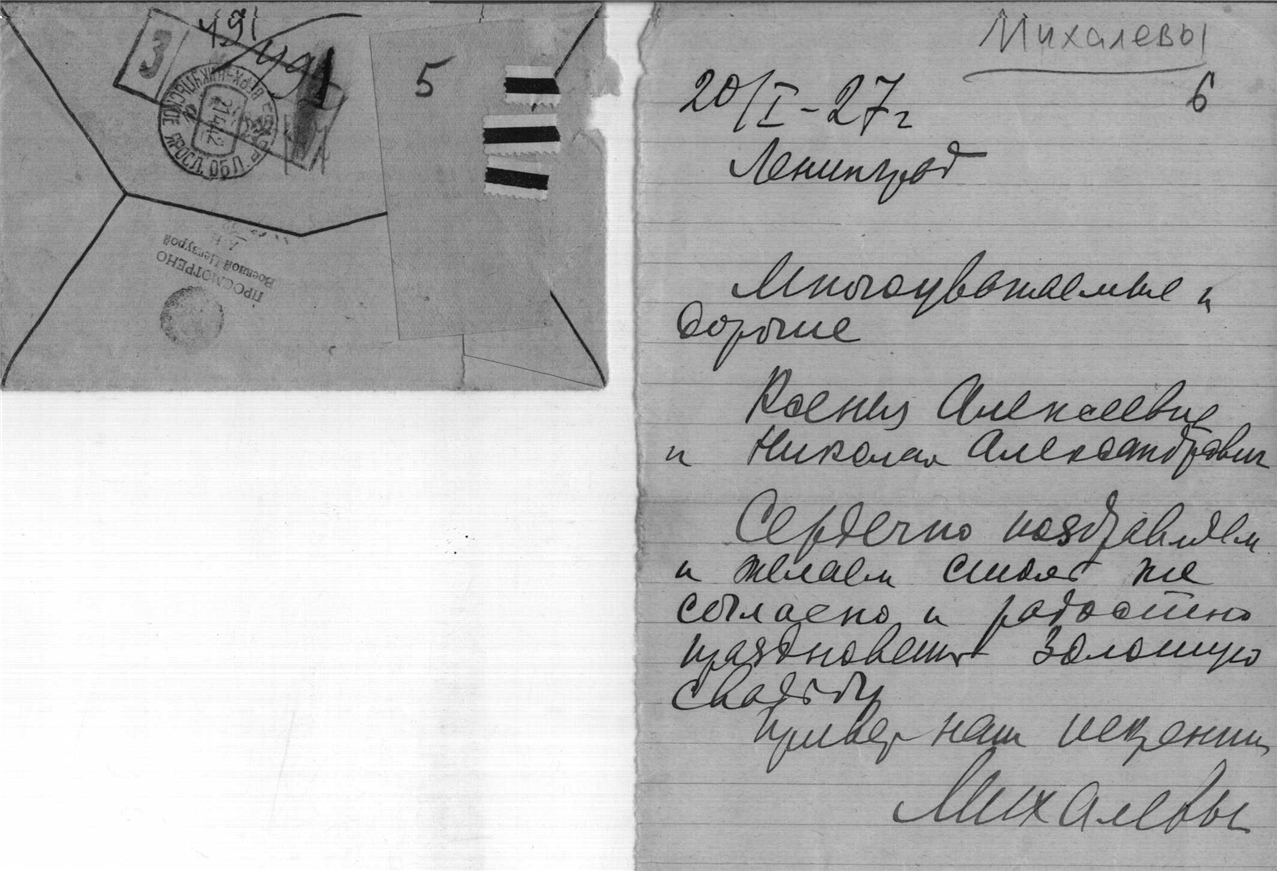 3
5
21 4 42
ЯРОСЛ. ОБЛ.
ПРОСМОТРЕНО
Военной Цензурой
Михалевы
20/I-27г
6
Ленинград
Многоуважаемые и
дорогие
Ксения Алексеевна
и Николай Александрович
Сердечно поздравляем
и желаем столь же
согласно и радостно
праздновать Золотую
свадьбу
Привет наш искренний
Михалевы